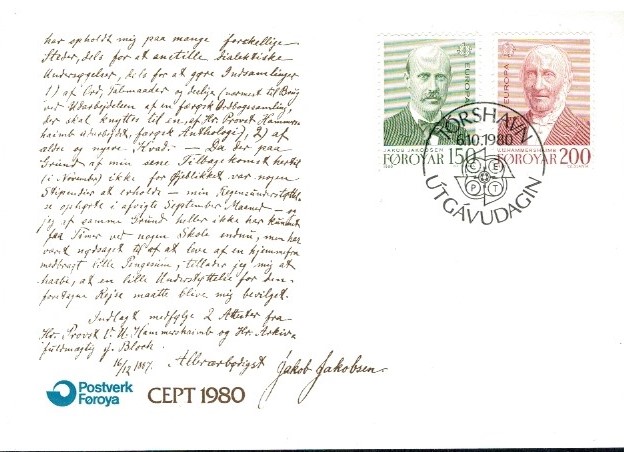 har opholdt mig paa mange forskellige
Steder, dels for at anstille dialektiske
Undersøgelser, dels for at gøre Indsamlinger
1) af Ord, Talemaader og deslige (nærmest til Brug
ved Udarbejdelsen af en færøsk Ordbogssamling,
der skal knyttes til en, af Hr. Provst Hammers-
haimb udarbejdet, færøsk Anthologi), 2) af
ældre og nyere Kvad. — Da der paa
Grund af min sene Tilbagekomst hertil
(i November) ikke for Øjeblikket var nogen
Stipendier at erholde — min Regensunderstøttelse
ophørte i afvigte September Maaned — og
jeg af samme Grund heller ikke har kunnet
faa Timer ved nogen Skole endnu, men har
været nødsaget til at leve af en hjemmefra
medbragt lille Pengesum, tillader jeg mig at
haabe, at en lille Understøttelse for den
foretagne Rejse maatte blive mig bevilget.
Indlagt medfølge 2 Attester fra
Hr. Provst V. U. Hammershaimb og Hr. Arkiv-
fuldmægtig J. Bloch.
16/12 1887. Allerærbødigst Jakob Jakobsen.
Postverk
Føroya
CEPT 1980
EUROPA
JAKOB JAKOBSEN
FØROYAR 150
EUROPA
V.U.HAMMERSHAIMB
FØROYAR 200
TÓRSHAVN
6.10.1980
CEPT
ÚTGÁVUDAGIN